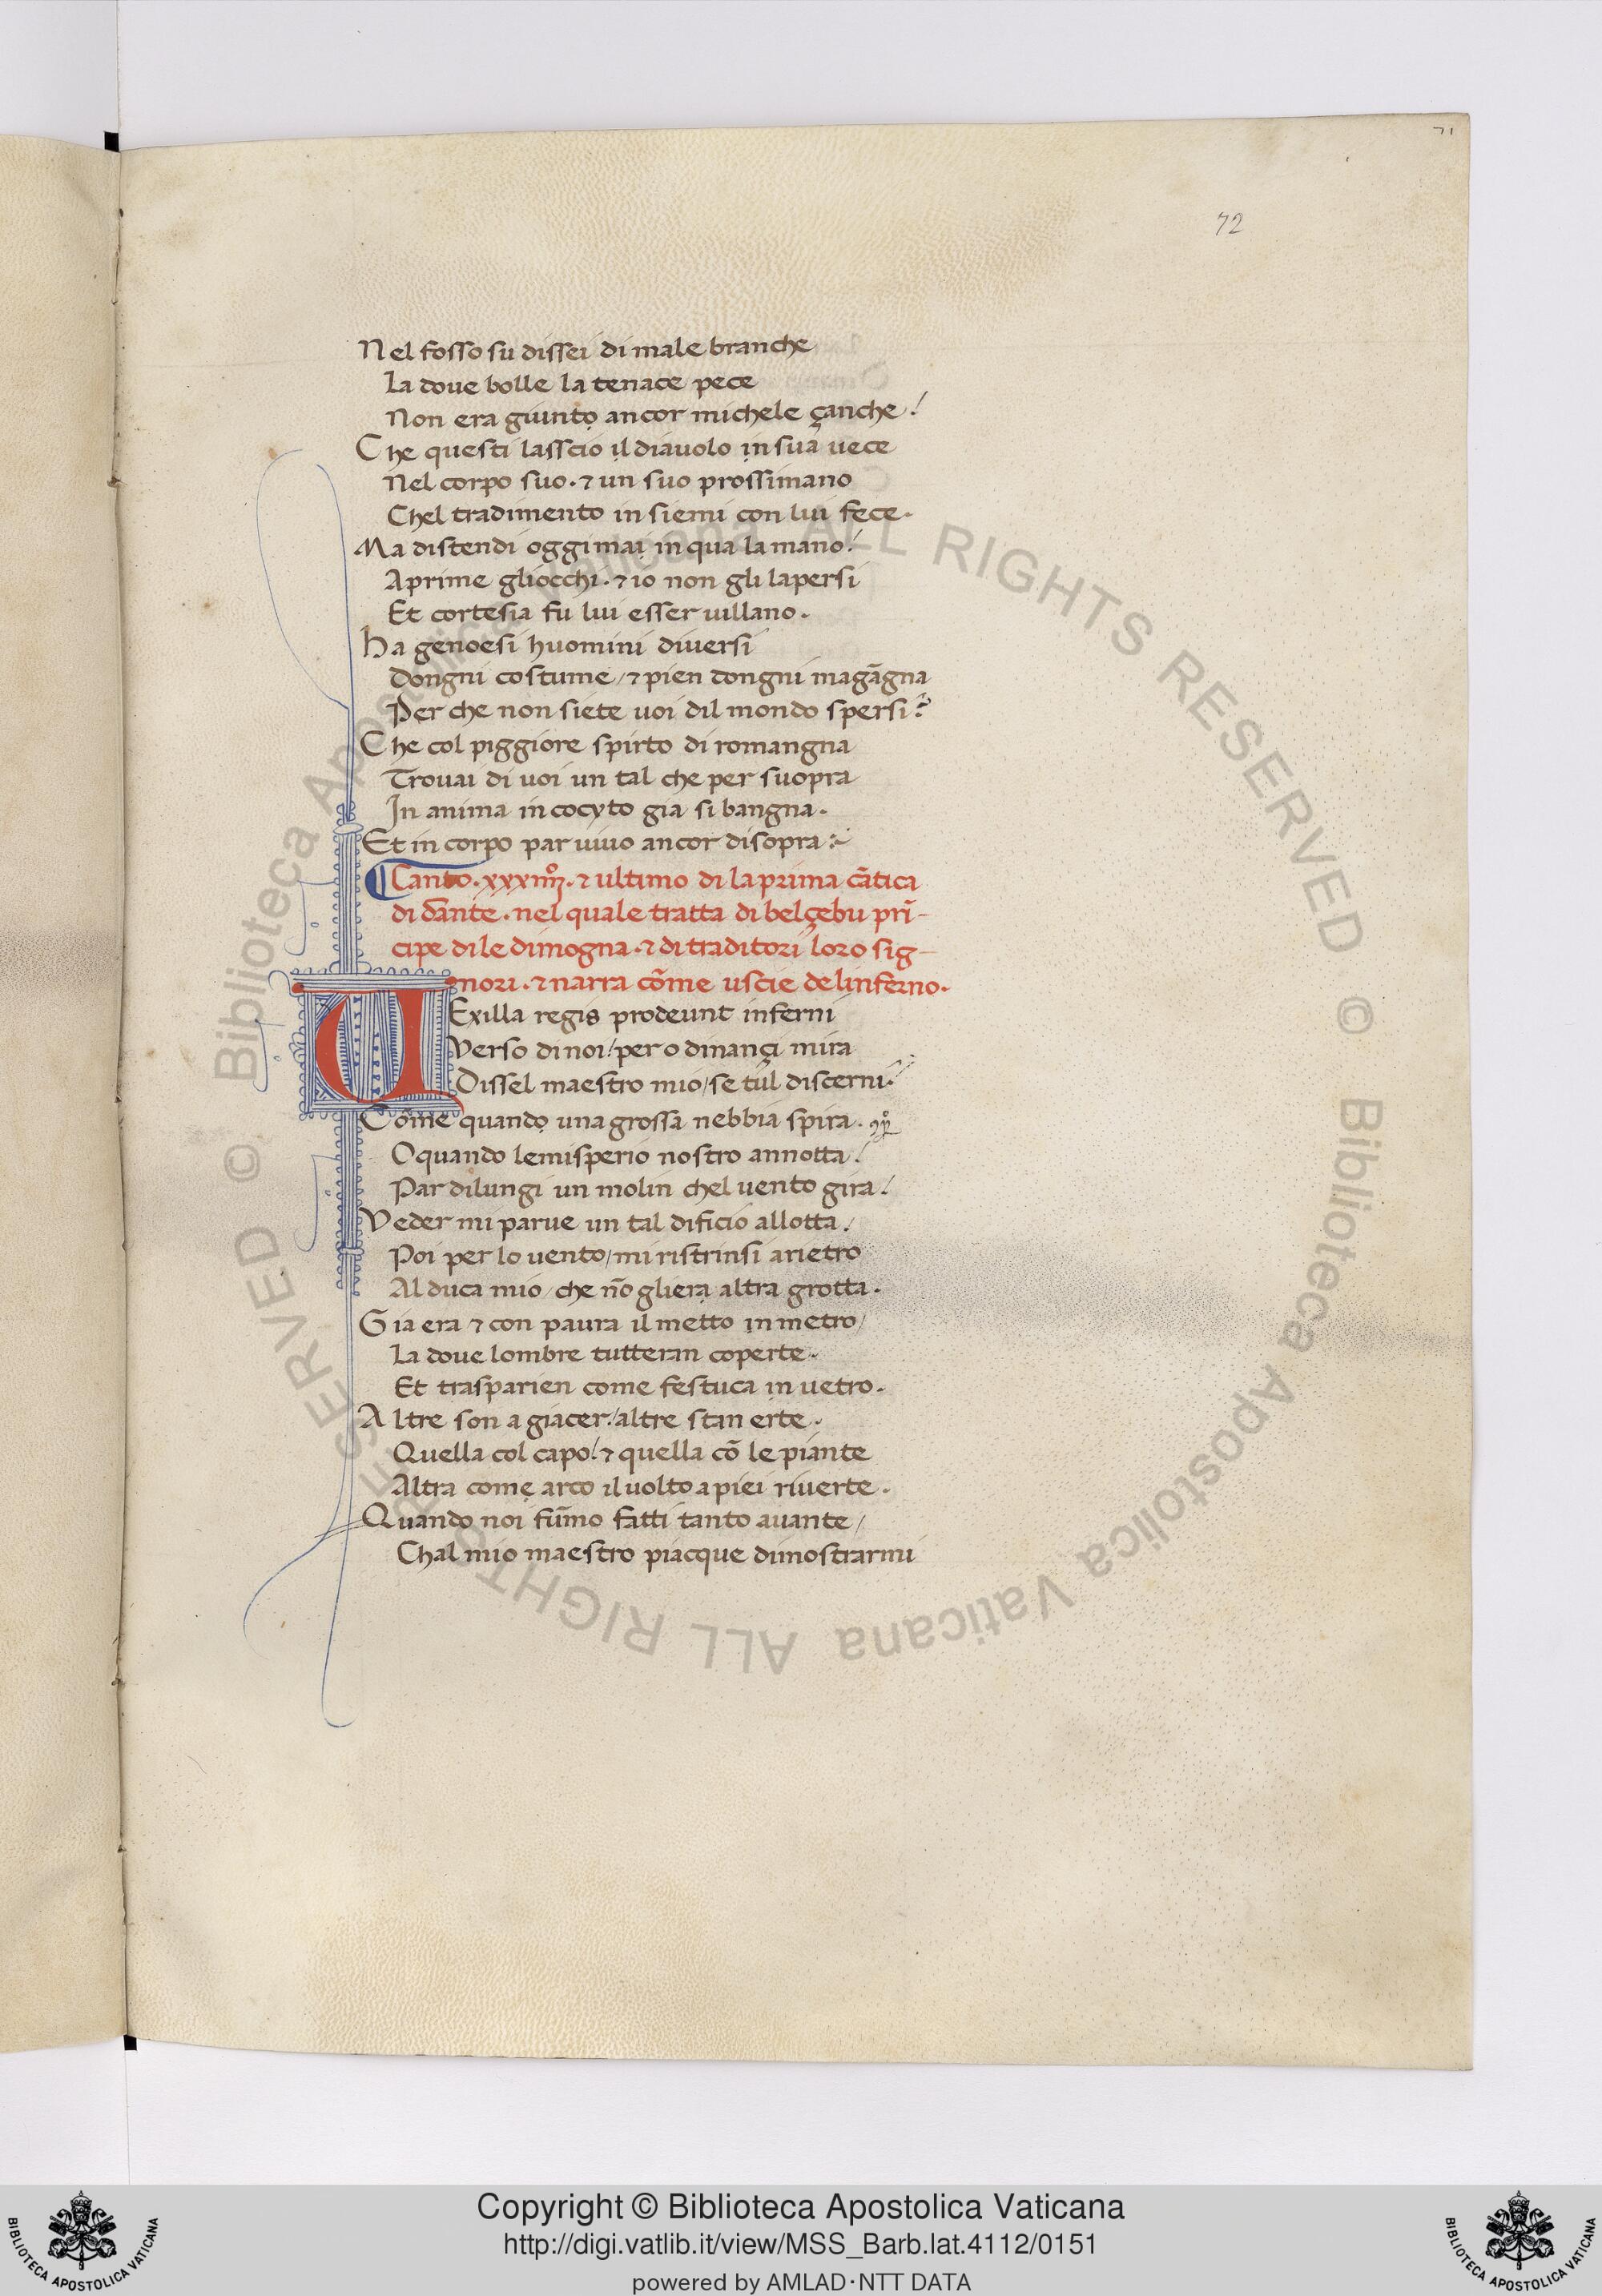 71
72
Nel fosso su dissei di male branche
La doue bolle la tenace pece
Non era giunto ancor michele çanche!
Che questi lasscio il diauolo in sua uece
Nel corpo suo. ⁊ un suo prossimano
Chel tradimento in siemi con lui fece.
Ma distendi oggimai in qua la mano!
Aprime gliocchi. ⁊ io non gli lapersi
Et cortesia fu lui esser uillano.
Ha genoesi huomini diuersi
Dongni costume / ⁊ pien dongni magãgna
Per che non siete uoi dil mondo spersi?
Che col piggiore spirto di romangna
Trouai di uoi un tal che per suopra
In anima in cocyto gia si bangna.
Et in corpo par uiuo ancor disopra:~
Canto. xxxiiijº. ⁊ ultimo di la prima cãtica
di dãnte. nel quale tratta di belçebu prĩ-
cipe di le dimogna. ⁊ di traditori loro sig-
nori. ⁊ narra cõme uscie de linferno.
VExilla regis prodeunt inferni
Verso di noi! per o dinançi mira
Dissel maestro mio / se tul discerni.
Cõme quando una grossa nebbia spira.
O quando lemisperio nostro annotta!
Par dilungi un molin chel uento gira!
Veder mi parue un tal dificio allotta!
Poi per lo uento / mi ristrinsi arietro
Al duca mio / che nõ gliera altra grotta.
Gia era ⁊ con paura il metto in metro /
La doue lombre tutteran coperte.
Et trasparien come festuca in uetro.
Altre son a giacer! altre stan erte.
Quella col capo! ⁊ quella cõ le piante
Altra come arco il uolto a piei riuerte.
Quando noi fũmo fatti tanto auante /
Chal mio maestro piacque dimostrarmi
© Biblioteca Apostolica Vaticana ALL RIGHTS RESERVED © Biblioteca Apostolica Vaticana ALL RIGHTS RESERVED
Copyright © Biblioteca Apostolica Vaticana
http://digi.vatlib.it/view/MSS_Barb.lat.4112/0151
powered by AMLAD·NTT DATA
BIBLIOTECA APOSTOLICA VATICANA
BIBLIOTECA APOSTOLICA VATICANA